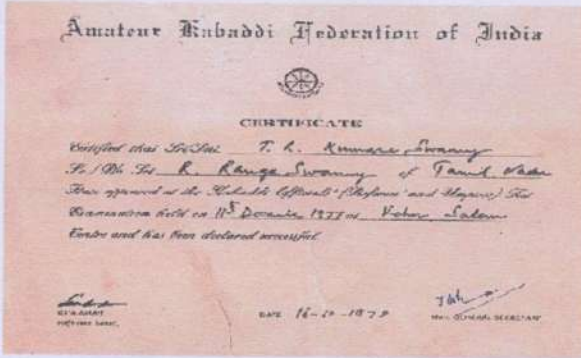 Amateur Kabaddi Federation of India
CERTIFICATE
Certified that Sri/Smt T. R. Kumara Swamy
S/o / D/o Sri R. Ranga Swamy of Tamil Nadu
Has appeared at the Kabaddi Officials' (Referees' and Umpires') Test
Examination held on 1977 at Salem
Centre and has been declared successful.
DATE 16-10-1979
HON. GENERAL SECRETARY